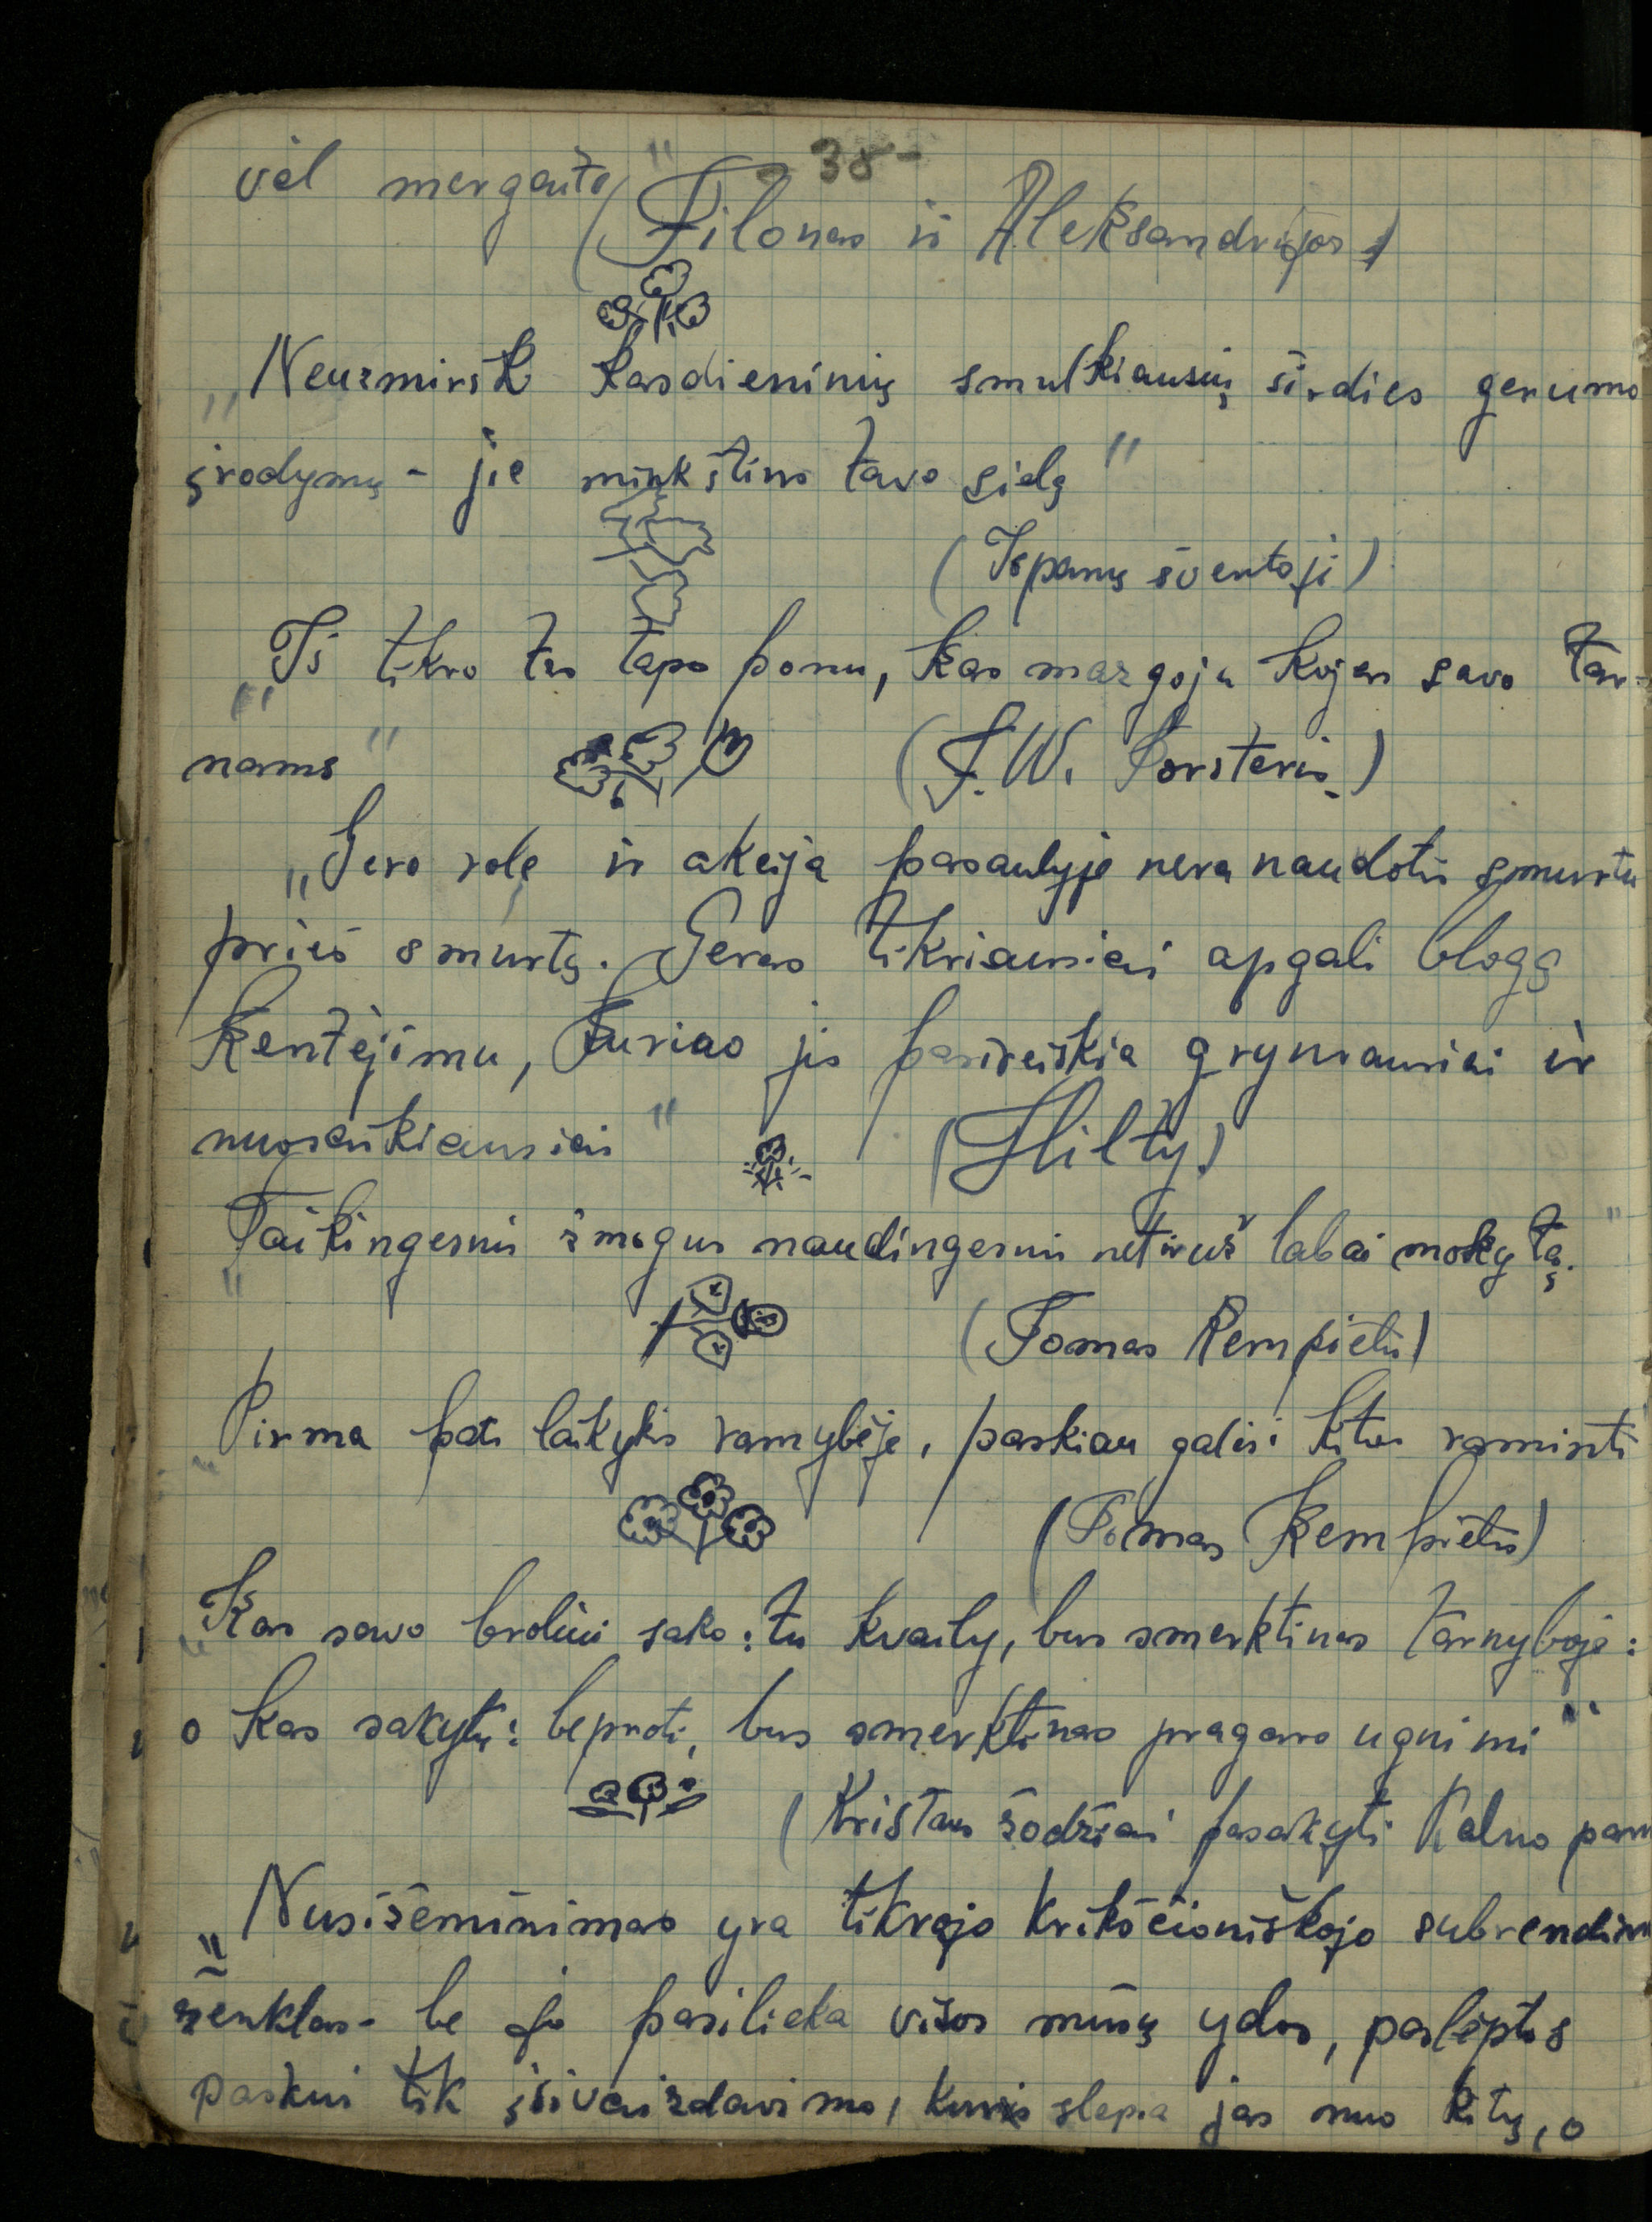 - 38 -
vėl mergaitę"
(Filonas iš Aleksandrijos)
„Neuzmiršk kasdieninių smulkiausių širdies gerumo
įrodymų - jie minkština tavo sielą"
(Ispanų šventoji)
„Iš tikro tas tapo ponu, kas mazgoja kojas savo tar-
nams"
(F. W. Forsteris)
„Gero rolė ir akcija pasaulyje nera naudotis smurtu
prieš smurtą. Geras tikriausiai apgali blogą
kentėjimu, kuriao jis pasireiškia gryniausiai ir
nuosaikiausiai"
(Hilty)
„Taikingesnis žmogus naudingesnis net už labai mokytą."
(Tomas Kempietis)
„Pirma pats laikykis ramybėje, paskiau galėsi kitus raminti
(Tomas Kempietis)
„Kas savo broliui sako: tu kvaily, bus smerktinas tarnyboje:
o kas sakytų: beproti, bus smerktinas pragaro ugnimi"
(Kristaus žodžiai pasakyti Kalno pam
„Nusižeminimas yra tikrojo krikščioniškojo subrendim
ženklas - be jo pasilieka visos mūsų ydos, paslėptos
paskui tik įsivaizdavimo, kuris slepia jas nuo kitų, o